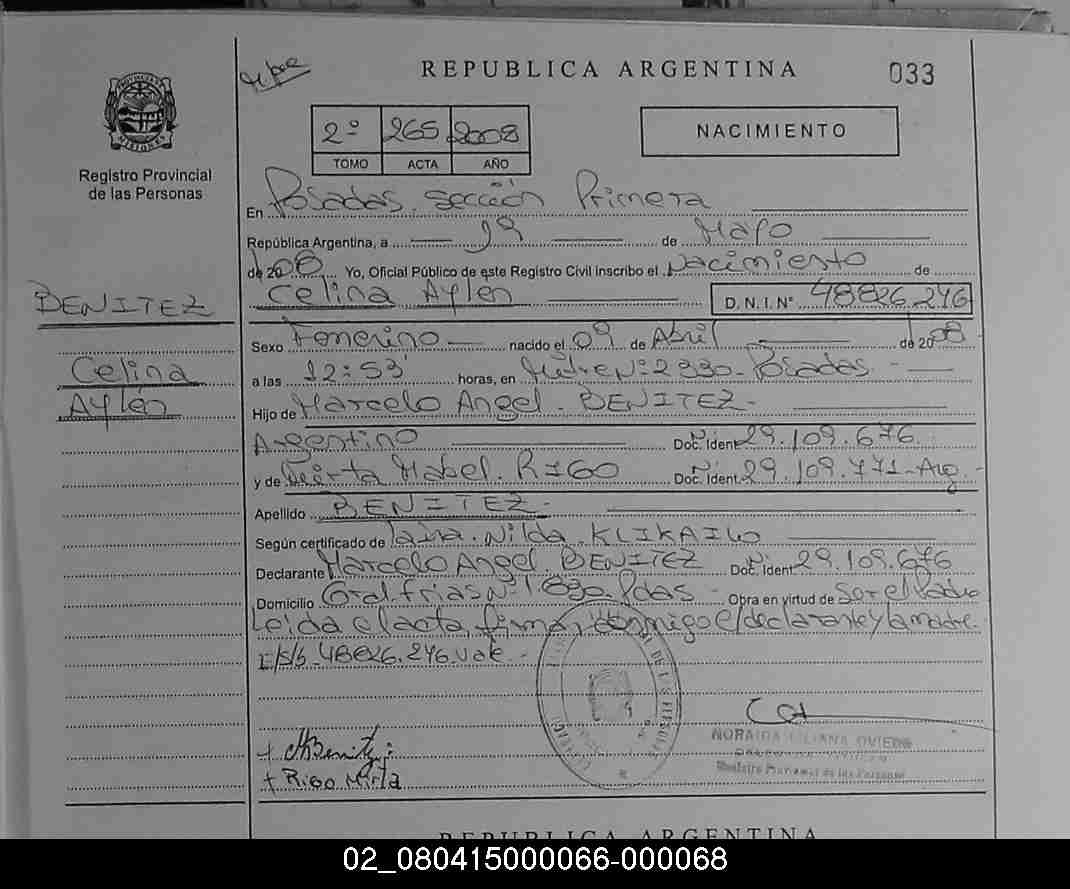 REPUBLICA ARGENTINA 033
2º 265 2008
TOMO ACTA AÑO
NACIMIENTO
MISIONES
Registro Provincial
de las Personas
En Posadas. Sección Primera
República Argentina, a 19 de Mayo
de 2008 Yo, Oficial Público de este Registro Civil inscribo el Nacimiento de
Celina Aylén D.N.I. Nº 48826.246
BENITEZ
Celina
Aylén
Sexo Femenino nacido el 09 de Abril de 2008
a las 12:53 horas, en Mitre Nº 2330. Posadas.-
Hijo de Marcelo Angel. BENITEZ.
Argentino Doc. Ident. 29.109.676.
y de Mirta Mabel. RIGO Doc. Ident. 29.109.771-Arg.-
Apellido BENITEZ.
Según certificado de Nilda. KLIKAILO
Declarante Marcelo Angel. BENITEZ Doc. Ident. 29.109.676
Domicilio Gral frias Nº 1830. Pdas - Obra en virtud de Ser el Padre
Leida el acta, firman conmigo el declarante y la madre.
E/S/b. 48826.246. Vale.-
+ MBenitez
+ Rigo Mirta
NORAIDA LILIANA OVIEDO
Registro Provincial de las Personas
REPUBLICA ARGENTINA
02_080415000066-000068